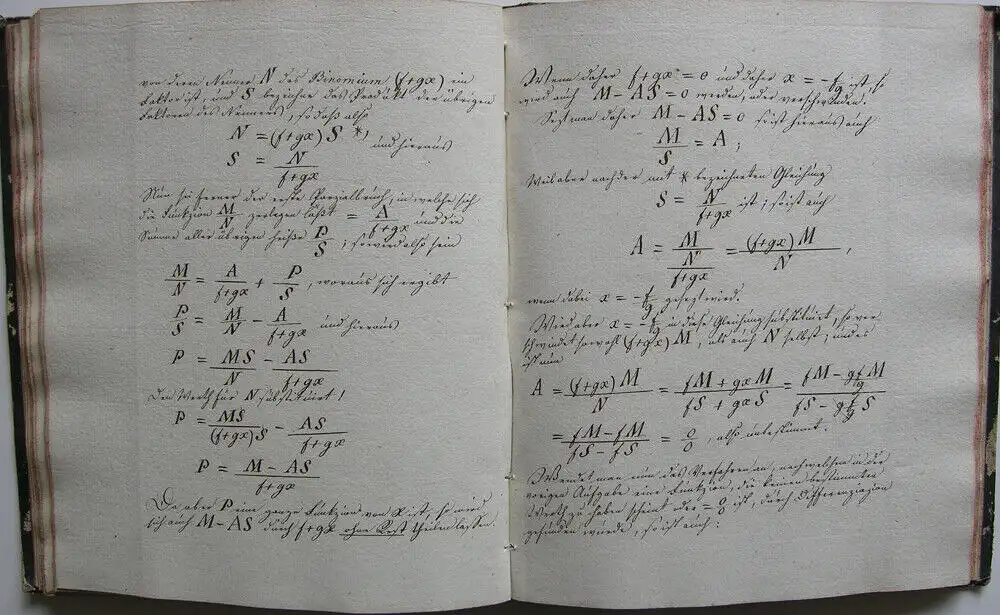 von deren Nenner N des Binomium (f+gx) ein
Faktor ist, und S bezeichne das Produkt der übrigen
Faktoren des Nenners, so daß also
N = (f+gx) S *, und hieraus
S = N/(f+gx)
Nun sei ferner der erste Parzialbruch, in welche sich
die Funkzion M/N zerlegen läßt = A/(f+gx) und die
Summe aller übrigen heiße P/S, so wird also sein
M/N = A/(f+gx) + P/S, woraus sich ergibt
P/S = M/N − A/(f+gx) und hieraus
P = MS/N − AS/(f+gx)
Den Werth für N substituirt
P = MS/((f+gx)S) − AS/(f+gx)
P = (M − AS)/(f+gx)
Da aber P eine ganze Funkzion von x ist, so muß
sich auch M − AS durch f+gx ohne Rest theilen lassen.
Wenn daher f+gx = 0 und daher x = −f/g ist, so
wird auch M − AS = 0 werden, oder verschwinden.
Sezt man daher M − AS = 0 so ist hieraus auch
M/S = A;
Weil aber nach der mit * bezeichneten Gleichung
S = N/(f+gx) ist; so ist auch
A = M/(N/(f+gx)) = (f+gx)M/N,
wenn dabei x = −f/g gesezt wird.
Wird aber x = −f/g in diese Gleichung substituirt, so ver
schwindet sowohl (f+gx) M, als auch N selbst; und es
ist nun
A = (f+gx)M/N = (fM + gxM)/(fS + gxS) = (fM − g f/g M)/(fS − g f/g S)
= (fM − fM)/(fS − fS) = 0/0, also unbestimmt.
Wendet man nun das Verfahren an, nach welchem in der
vorigen Aufgabe eine Funkzion, die keinen bestimmten
Werth zu haben scheint oder = 0/0 ist, durch Differenziazion
gefunden wurde, so ist auch: